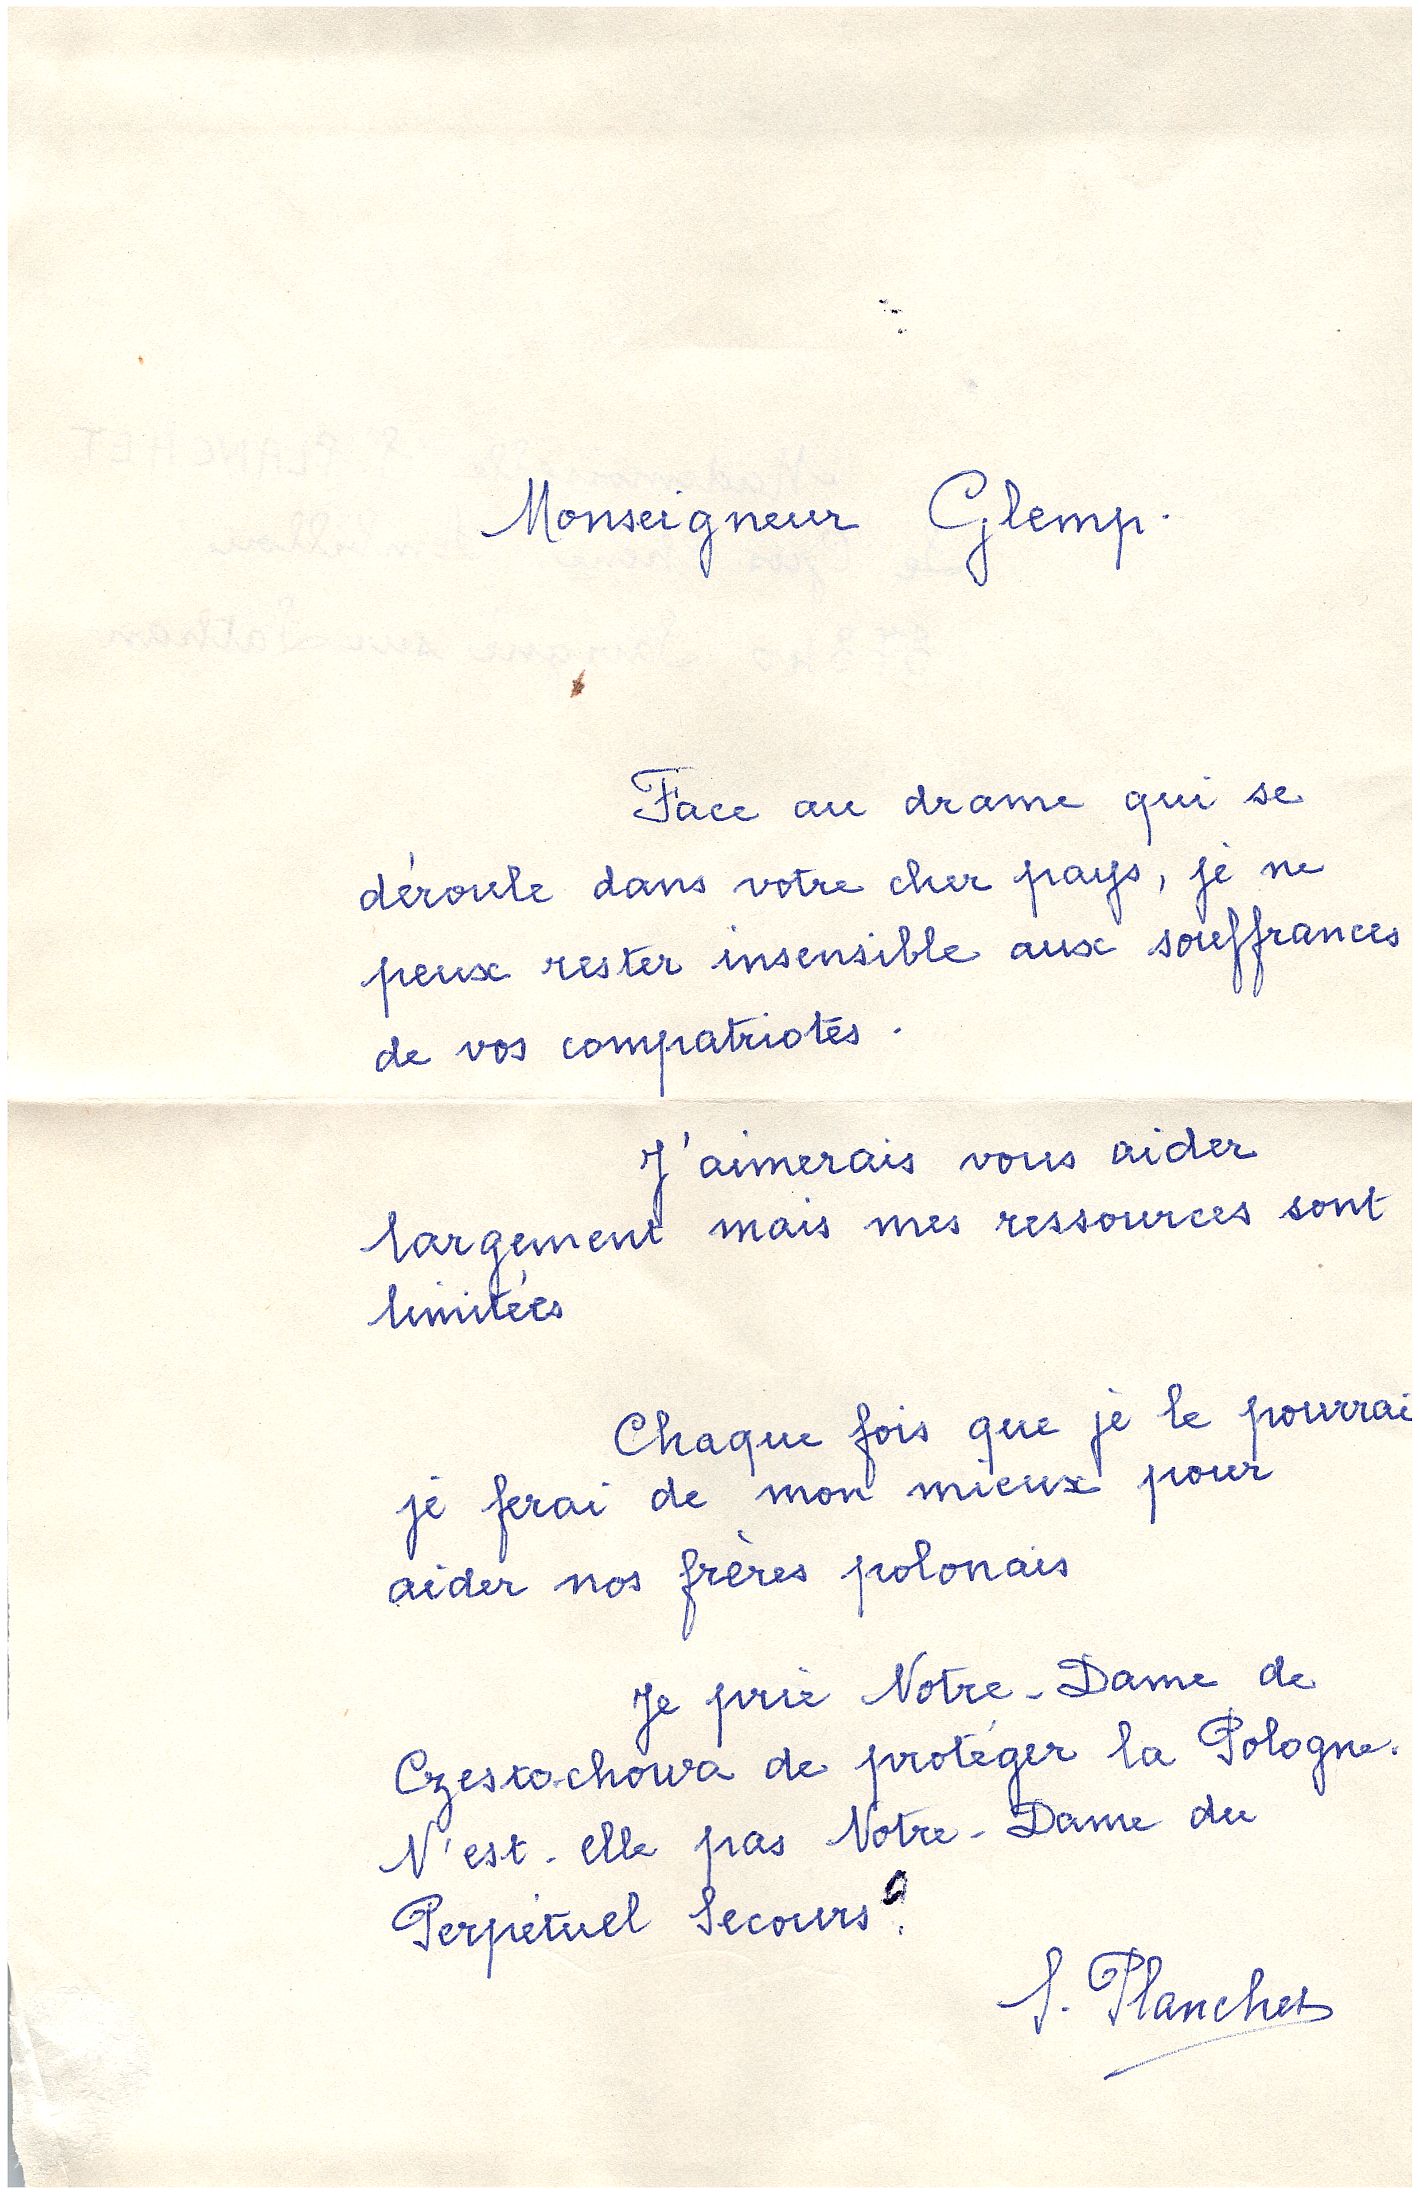 Monseigneur Glemp.
Face au drame qui se
déroule dans votre cher pays, je ne
peux rester insensible aux souffrances
de vos compatriotes.
J'aimerais vous aider
largement mais mes ressources sont
limitées
Chaque fois que je le pourrai
je ferai de mon mieux pour
aider nos frères polonais
Je prie Notre-Dame de
Czestochowa de protéger la Pologne.
N'est-elle pas Notre-Dame du
Perpétuel Secours?
S. Planchet